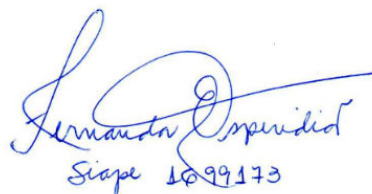 Fernanda Esperidião
Siape 1699173